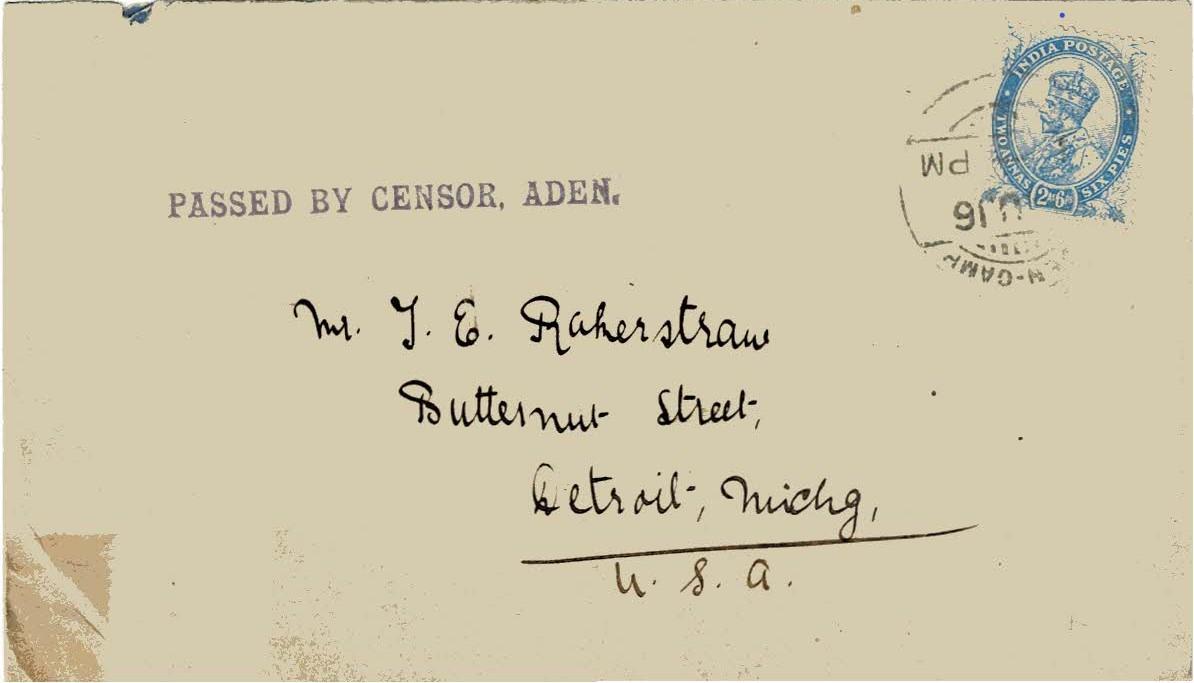 INDIA POSTAGE
TWO ANNAS
SIX PIES
2As6Ps
PM
16
PASSED BY CENSOR, ADEN.
Mr. T. E. Rakerstraw
Butternut Street,
Detroit, Michg,
U. S. A.